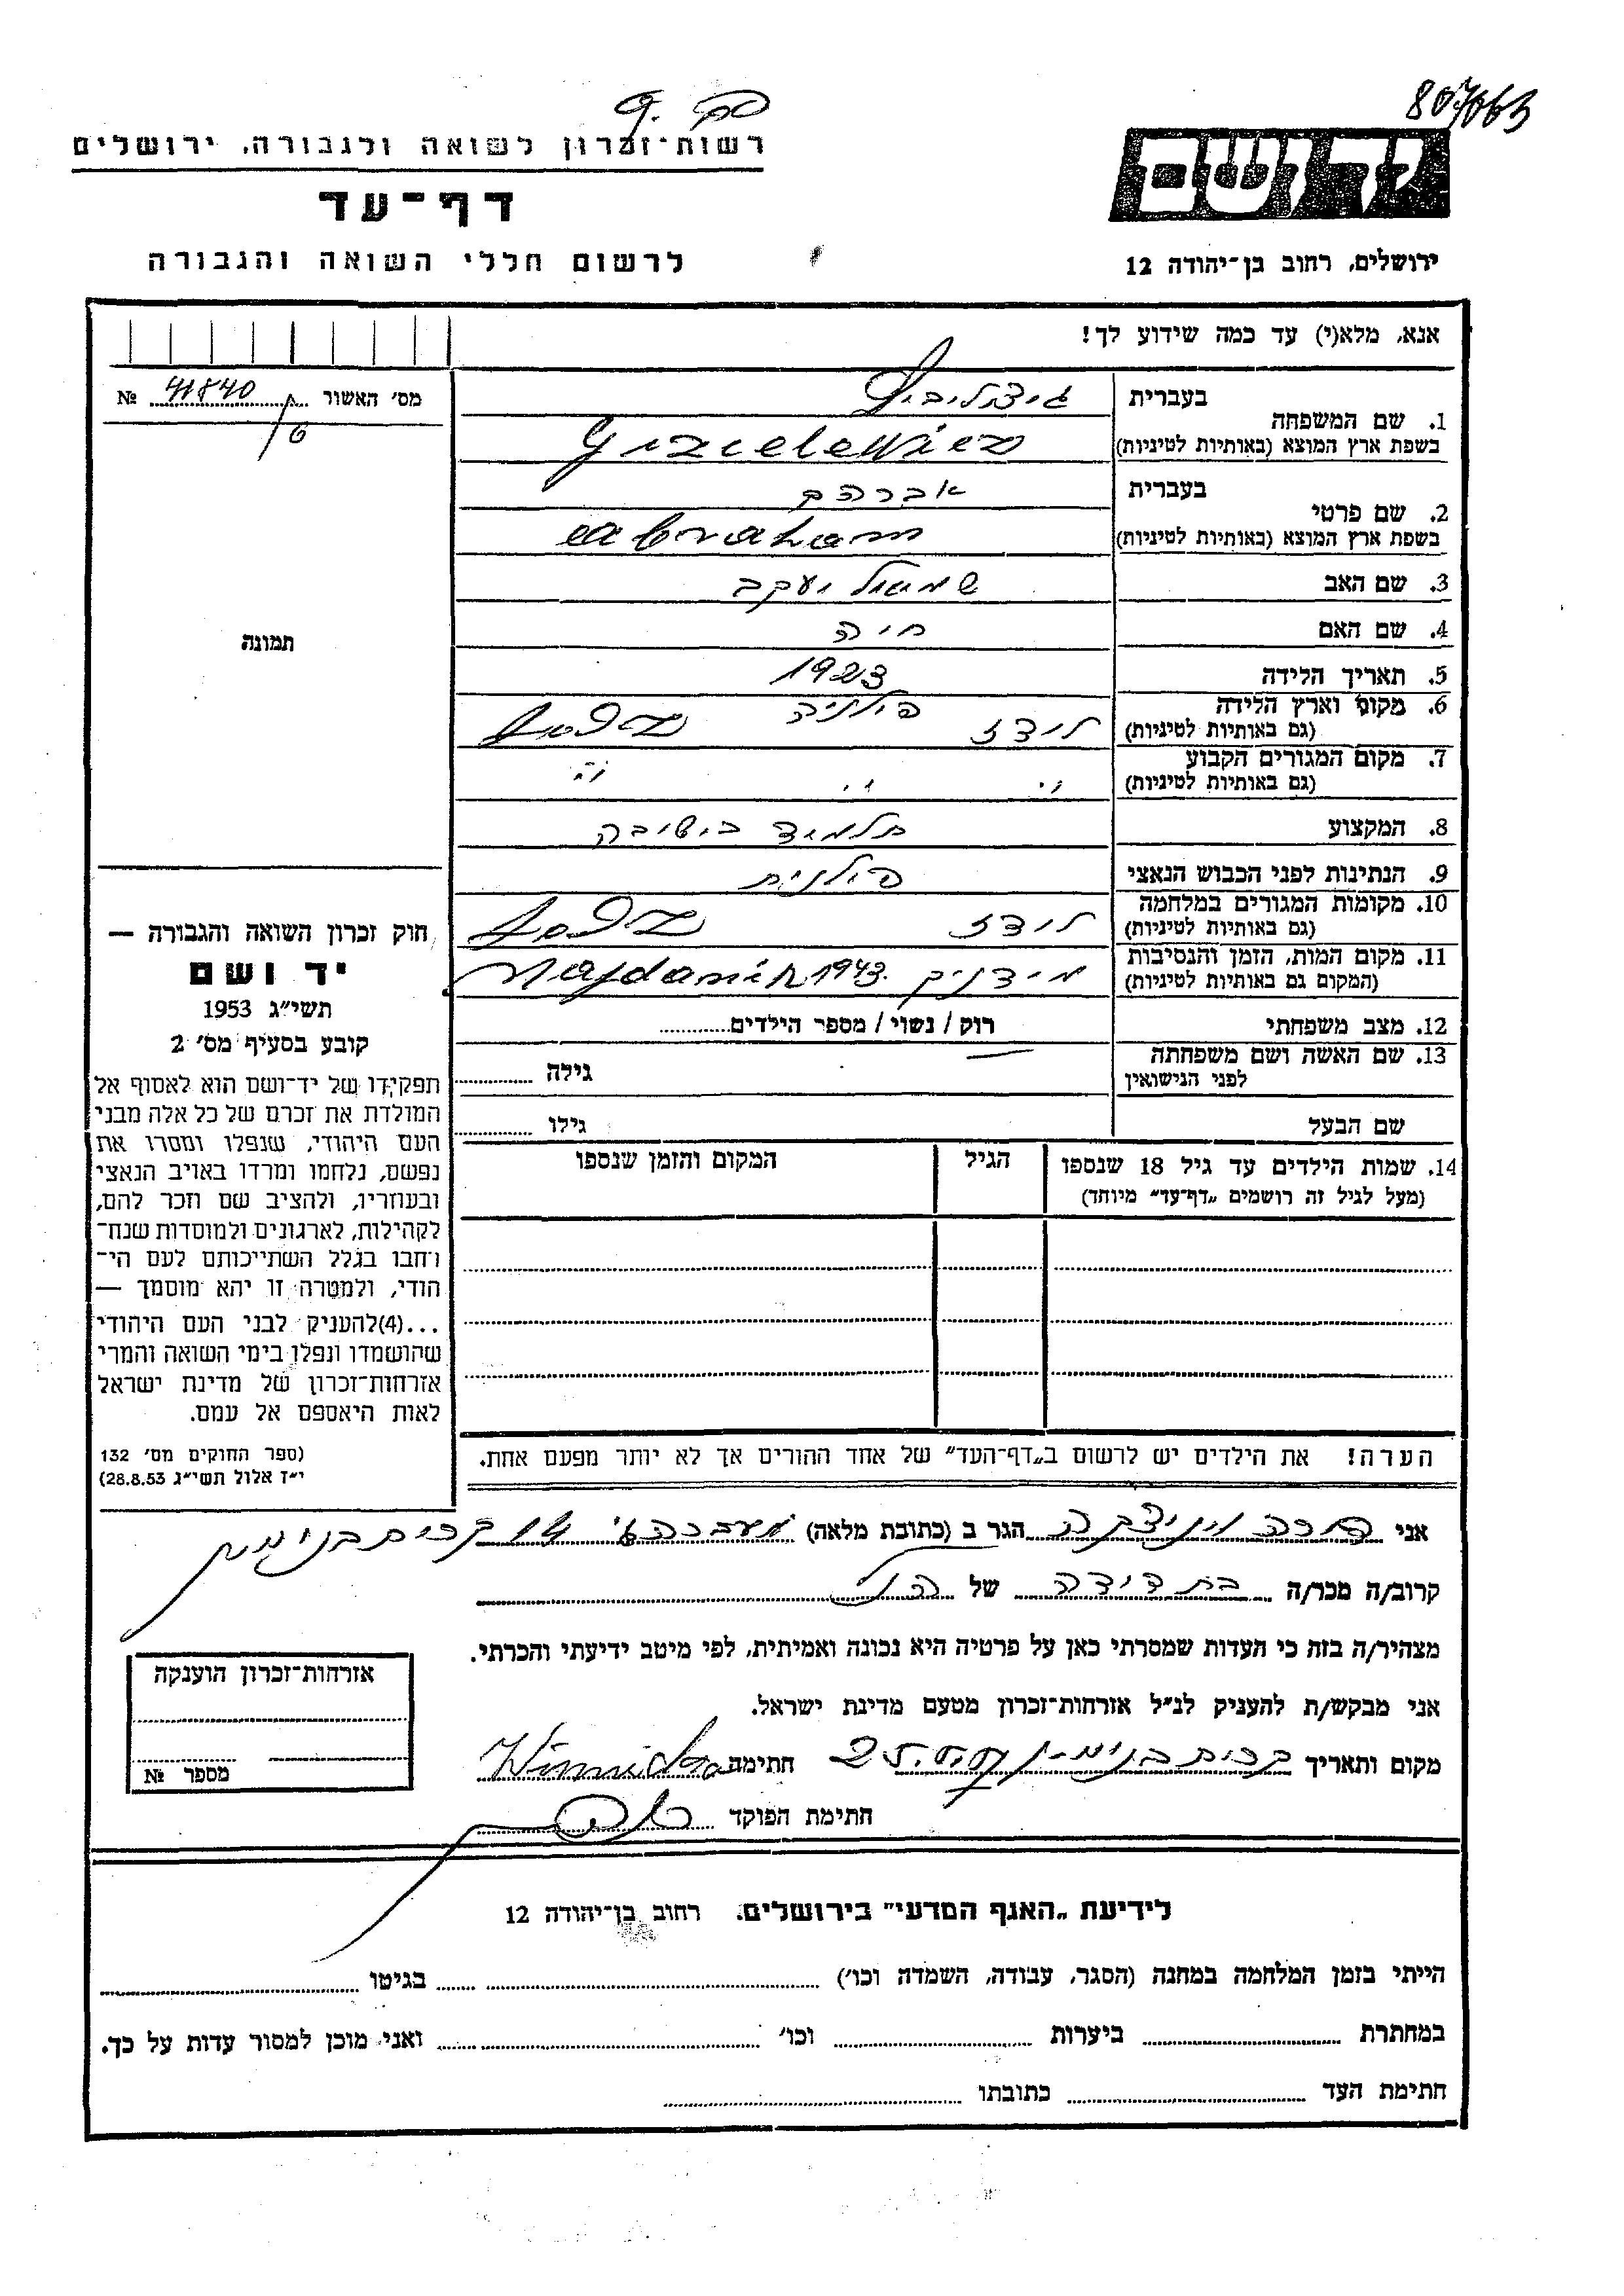 807063
רשות-זכרון לשואה ולגבורה, ירושלים
דף-עד
לרשום חללי השואה והגבורה
יד ושם
ירושלים, רחוב בן-יהודה 12
אנא, מלא(י) עד כמה שידוע לך!
מס' האשור 41840 №
6
1. שם המשפחה בעברית
בשפת ארץ המוצא (באותיות לטיניות) Gizelewicz
2. שם פרטי בעברית אברהם
בשפת ארץ המוצא (באותיות לטיניות) abraham
3. שם האב שמואל יעקב
4. שם האם חיה
5. תאריך הלידה 1923
6. מקום וארץ הלידה לודז פולניה Łodz
(גם באותיות לטיניות)
7. מקום המגורים הקבוע " " "
(גם באותיות לטיניות)
8. המקצוע תלמיד בישיבה
9. הנתינות לפני הכבוש הנאצי פולנית
10. מקומות המגורים במלחמה לודז Łodz
(גם באותיות לטיניות)
11. מקום המות, הזמן והנסיבות מידניק 1943. Majdanik
(המקום גם באותיות לטיניות)
12. מצב משפחתי רוק / נשוי / מספר הילדים
13. שם האשה ושם משפחתה — גילה
לפני הנישואין
שם הבעל גילו
14. שמות הילדים עד גיל 18 שנספו הגיל המקום והזמן שנספו
(מעל לגיל זה רושמים „דף-עד" מיוחד)
הערה! את הילדים יש לרשום ב„דף-העד" של אחד ההורים אך לא יותר מפעם אחת.
תמונה
חוק זכרון השואה והגבורה —
יד ושם
תשי"ג 1953
קובע בסעיף מס' 2
תפקידו של יד-ושם הוא לאסוף אל
המולדת את זכרם של כל אלה מבני
העם היהודי, שנפלו ומסרו את
נפשם, נלחמו ומרדו באויב הנאצי
ובעוזריו, ולהציב שם וזכר להם,
לקהילות, לארגונים ולמוסדות שנח-
רבו בגלל השתייכותם לעם הי-
הודי, ולמטרה זו יהא מוסמך —
...(4)להעניק לבני העם היהודי
שהושמדו ונפלו בימי השואה והמרי
אזרחות-זכרון של מדינת ישראל
לאות היאספם אל עמם.
(ספר החוקים מס' 132
י"ז אלול תשי"ג 28.8.53)
אני שרה הגר ב (כתובת מלאה) 14 בנימינה
קרוב/ה מכר/ה בת דודה של הנ"ל
מצהיר/ה בזה כי העדות שמסרתי כאן על פרטיה היא נכונה ואמיתית, לפי מיטב ידיעתי והכרתי.
אני מבקש/ת להעניק לנ"ל אזרחות-זכרון מטעם מדינת ישראל.
מקום ותאריך חתימה
חתימת הפוקד
אזרחות-זכרון הוענקה
מספר №
לידיעת „האגף המדעי" בירושלים. רחוב בן-יהודה 12
הייתי בזמן המלחמה במחנה (הסגר, עבודה, השמדה וכו') בגיטו
במחתרת ביערות וכו' ואני מוכן למסור עדות על כך.
חתימת העד כתובתו